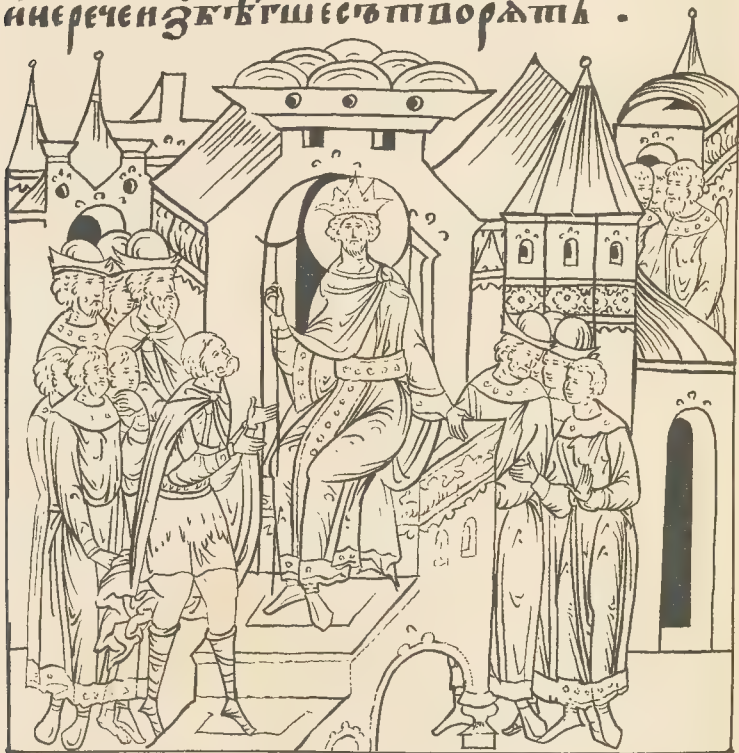 инеречеи збѣгшесътворѧть .